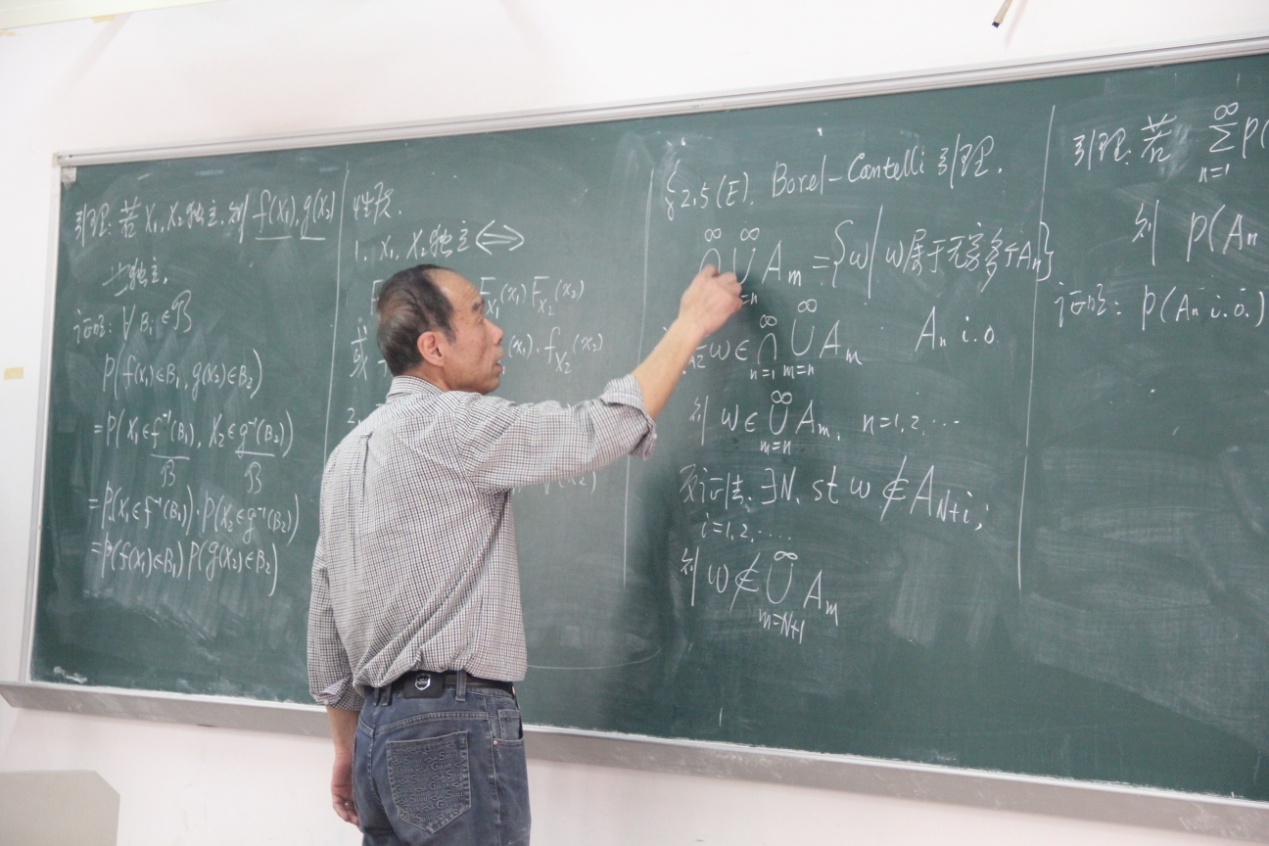 引理: 若 X₁, X₂ 独立, 则 f(X₁), g(X₂)
也独立.
证明: ∀ B₁ ∈ ℬ
P(f(X₁)∈B₁, g(X₂)∈B₂)
= P(X₁∈f⁻¹(B₁), X₂∈g⁻¹(B₂))
ℬ ℬ
= P(X₁∈f⁻¹(B₁))·P(X₂∈g⁻¹(B₂))
= P(f(X₁)∈B₁) P(g(X₂)∈B₂)
性质.
1. X₁, X₂ 独立 ⟺
F_{X₁}(x₁) F_{X₂}(x₂)
或 (x₁)·f_{X₂}(x₂)
2.
§2.5 (E). Borel-Cantelli 引理.
∞ ∞
∩ ∪ A_m = {ω | ω属于无穷多个A_n}
ω ∈ ∩_{n=1}^∞ ∪_{m=n}^∞ A_m A_n i.o.
则 ω ∈ ∪_{m=n}^∞ A_m, n=1,2,⋯
反证法, ∃N, st ω ∉ A_{N+i},
i=1,2,⋯
则 ω ∉ ∪_{m=N+1}^∞ A_m
引理: 若 ∑_{n=1}^∞ P(
则 P(A_n
证明: P(A_n i.o.)